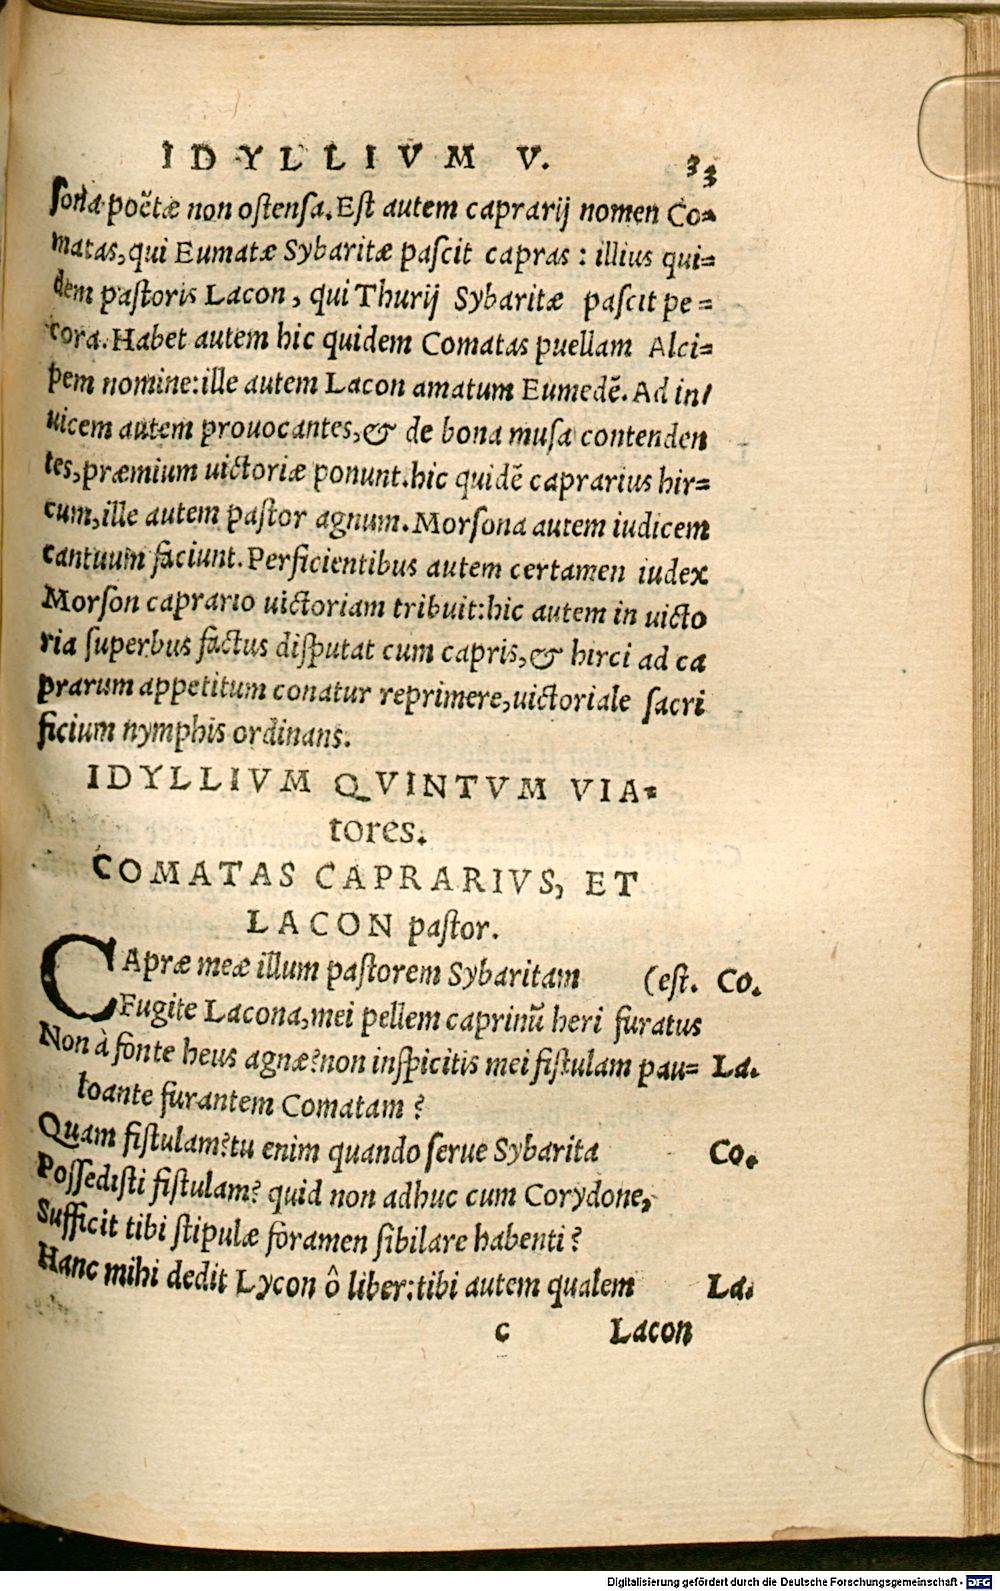 IDYLLIVM V. 33
sona poëtæ non ostensa. Est autem caprarij nomen Co=
matas, qui Eumatæ Sybaritæ pascit capras : illius qui=
dem pastoris Lacon, qui Thurij Sybaritæ pascit pe=
cora. Habet autem hic quidem Comatas puellam Alci=
pem nomine: ille autem Lacon amatum Eumedẽ. Ad in/
uicem autem prouocantes, & de bona musa contenden
tes, præmium uictoriæ ponunt. hic quidẽ caprarius hir=
cum, ille autem pastor agnum. Morsona autem iudicem
cantuum faciunt. Perficientibus autem certamen iudex
Morson caprario uictoriam tribuit: hic autem in uicto
ria superbus factus disputat cum capris, & hirci ad ca
prarum appetitum conatur reprimere, uictoriale sacri
ficium nymphis ordinans.
IDYLLIVM QVINTVM VIA=
tores.
COMATAS CAPRARIVS, ET
LACON pastor.
CApræ meæ illum pastorem Sybaritam (est. Co.
Fugite Lacona, mei pellem caprinũ heri furatus
Non à fonte heus agnæ? non inspicitis mei fistulam pau= La.
loante furantem Comatam ?
Quam fistulam? tu enim quando serue Sybarita Co.
Possedisti fistulam? quid non adhuc cum Corydone,
Sufficit tibi stipulæ foramen sibilare habenti ?
Hanc mihi dedit Lycon ô liber: tibi autem qualem La.
c Lacon
Digitalisierung gefördert durch die Deutsche Forschungsgemeinschaft - DFG